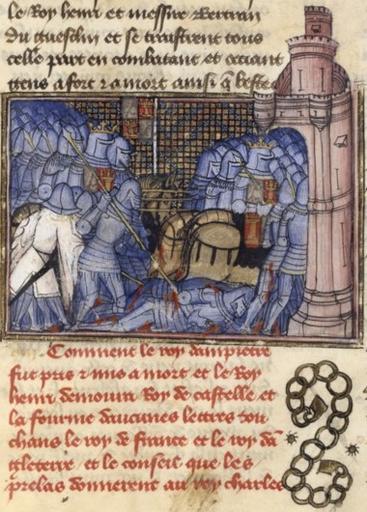 le Roy henri et messire Bertran
du Guesclin et se traistrent tous
celle part en combatant et occiant
gens a fort z a mort ainsi q̃ beste
Comment le roy dampietre
fut pris z mis a mort et le Roy
henri demoura Roy de castelle et
la fourme daucunes lettres tou
chans le roy de france et le roy dā
gleterre et le conseil que les
prelas donnerent au roy charles